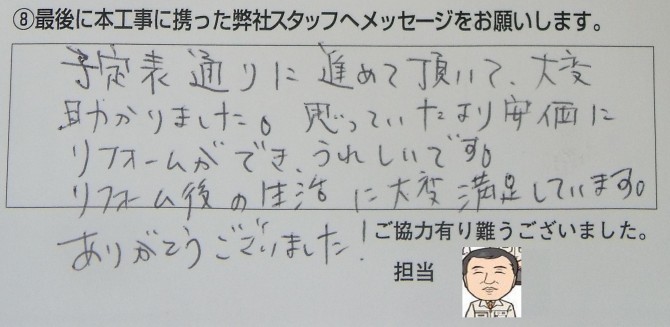 ⑧最後に本工事に携った弊社スタッフへメッセージをお願いします。
予定表通りに進めて頂いて、大変
助かりました。思っていたより安価に
リフォームができ、うれしいです。
リフォーム後の生活に大変満足しています。
ありがとうございました！
ご協力有り難うございました。
担当